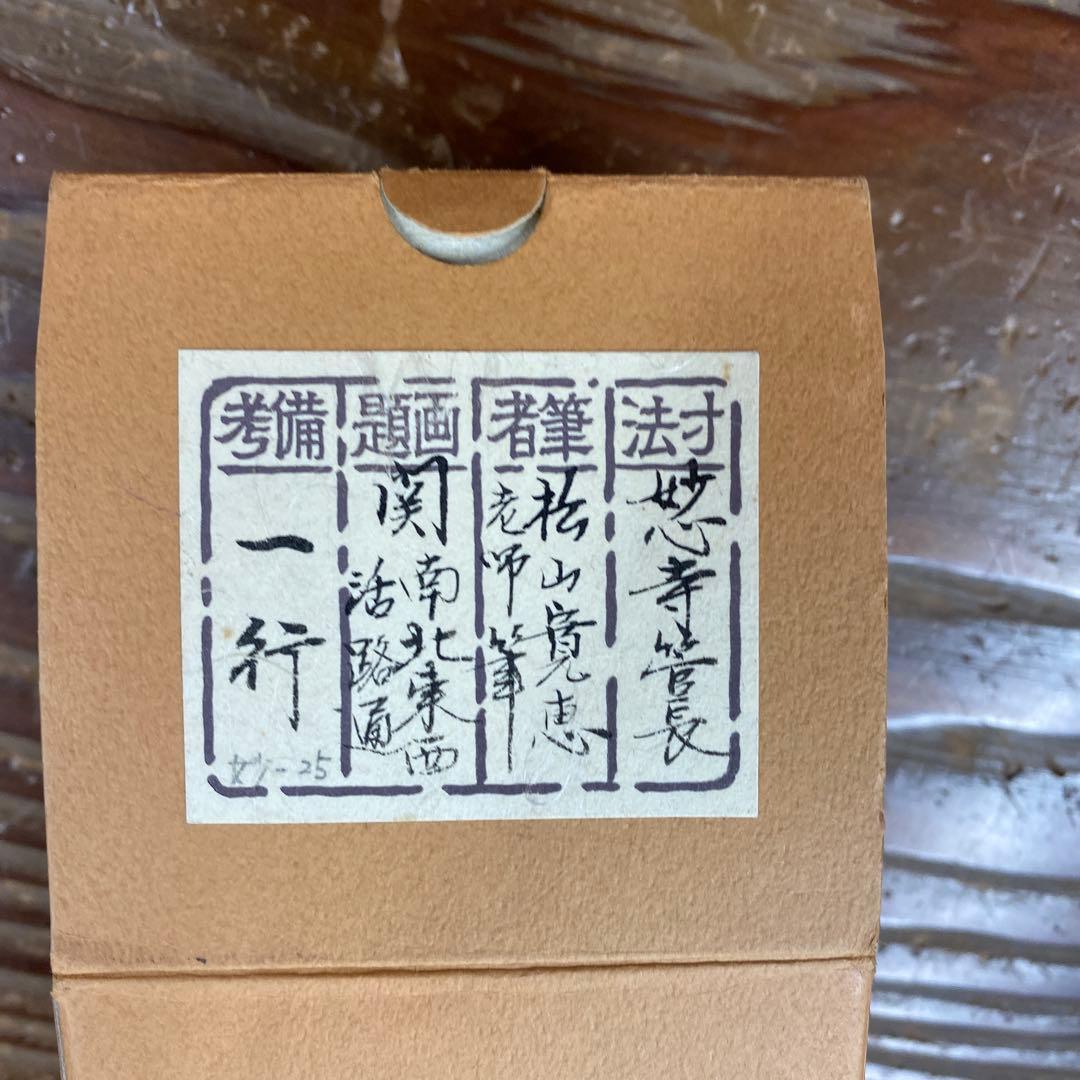 寸法
妙心寺管長
筆者
松山寛恵
老師筆
画題
関南北東西
活路通
備考
一行
妙-25